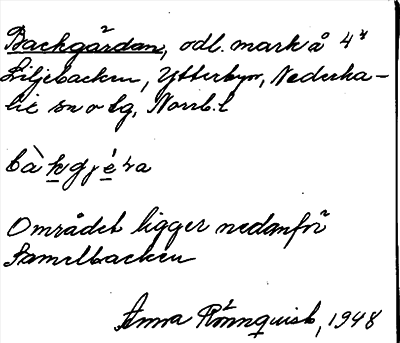 Backgården, odl. mark å 4⁴
Liljebacken, Ytterbyn, Nederka-
lix sn o tg, Norrb. l
bàkgjéra
Området ligger nedanför
Samelbacken
Anna Rönnquist, 1948